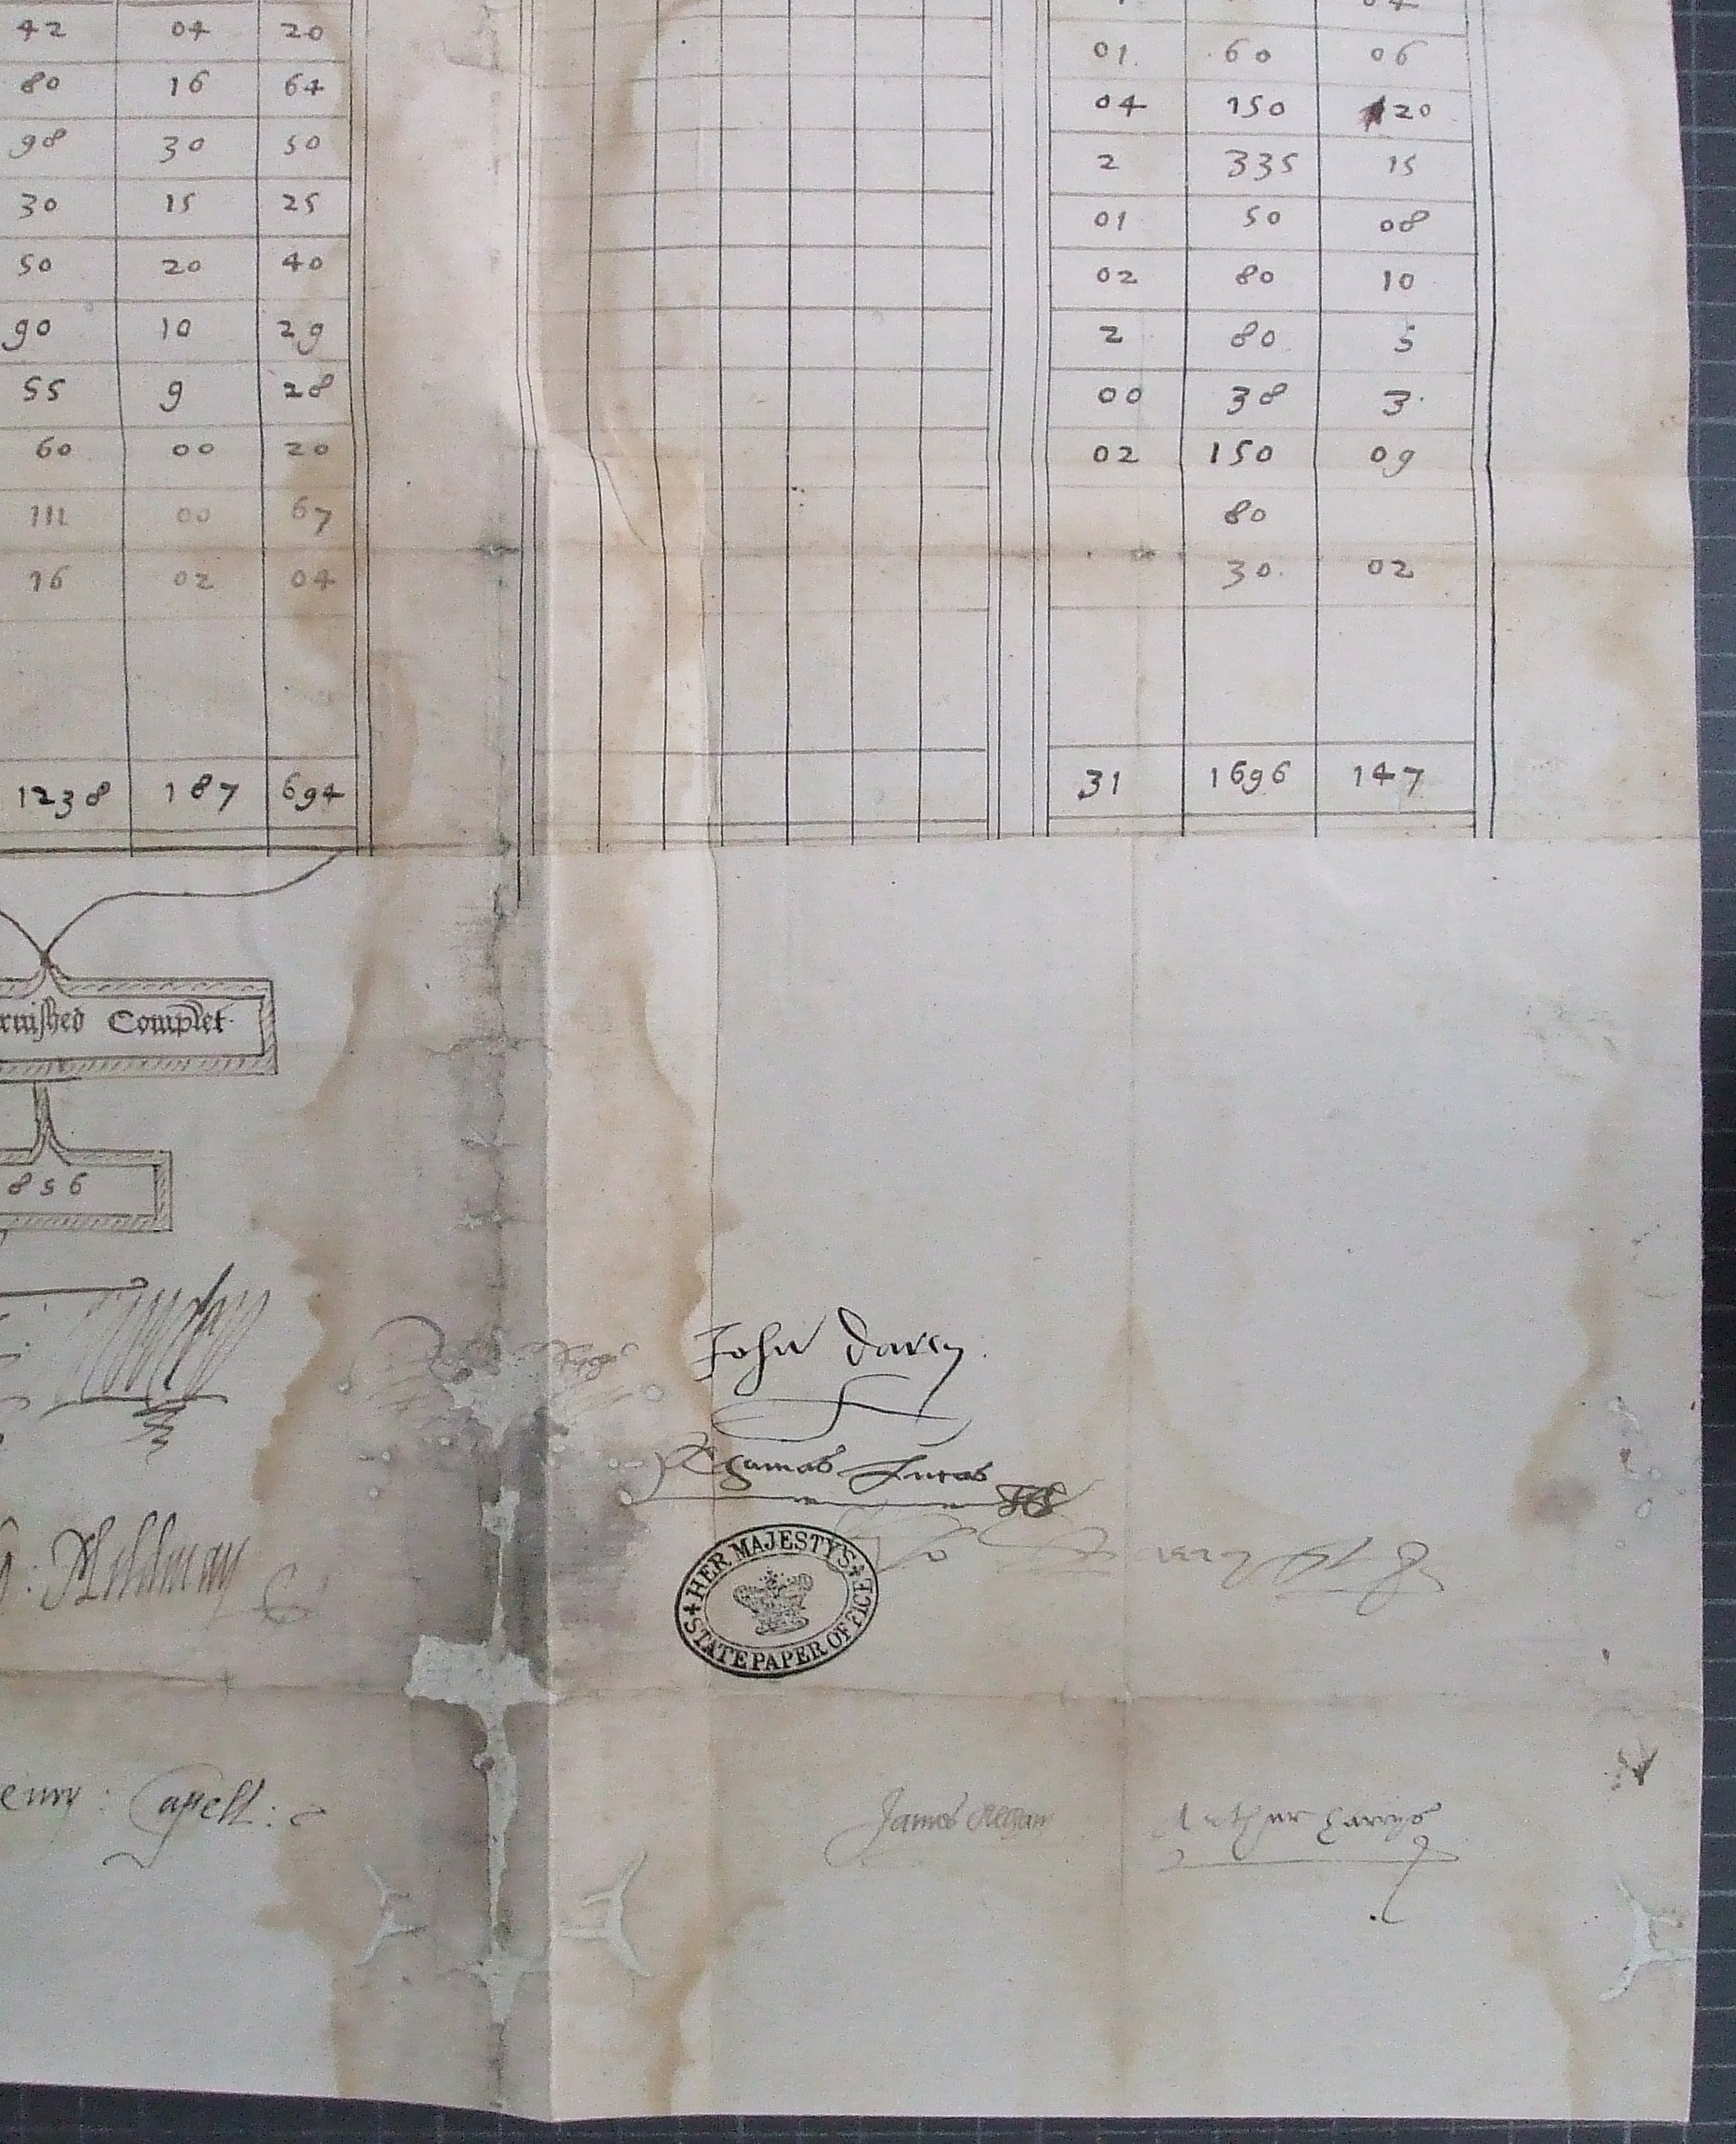 42 04 20
80 16 64 01 60 06
98 30 50 04 150 20
30 15 25 2 335 15
50 20 40 01 50 08
90 10 29 02 80 10
55 9 28 2 80 5
60 00 20 00 38 3
111 00 67 02 150 09
16 02 04 80
30 02
1238 187 694 31 1696 147
rnished Complet
856
John Darcy
Thamas Lucas
HER MAJESTY'S STATE PAPER OFFICE
: Mildmay
enry : Capell :
James Arthur Harrys